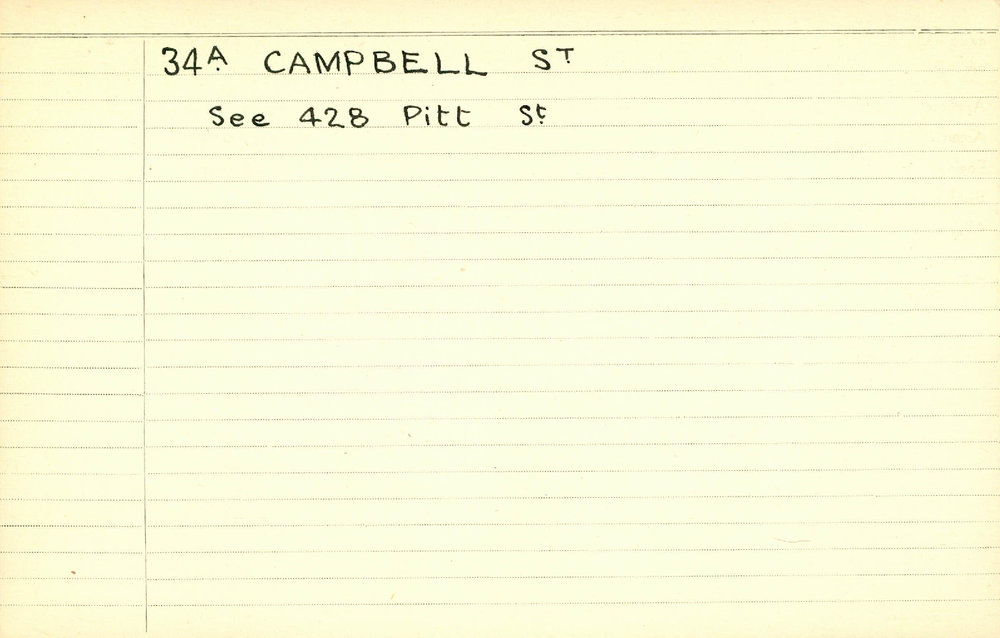 34A CAMPBELL ST
See 428 Pitt St